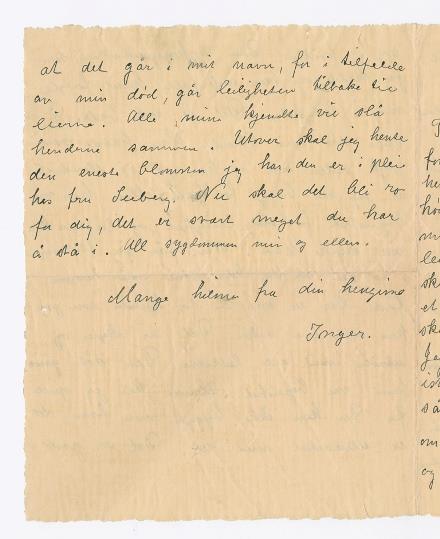 at det går i mit navn, for i tilfælde
av min død, går leiligheten tilbake til
eierne. Alle mine kjendte vil slå
henderne sammen. Utover skal jeg hente
den eneste blomsten jeg har, den er i pleie
hos fru Seeberg. Nu skal det bli ro
for dig, det er svært meget du har
å stå i. All sygdommen min og ellers.
Mange hilsner fra din hengivne
Inger.